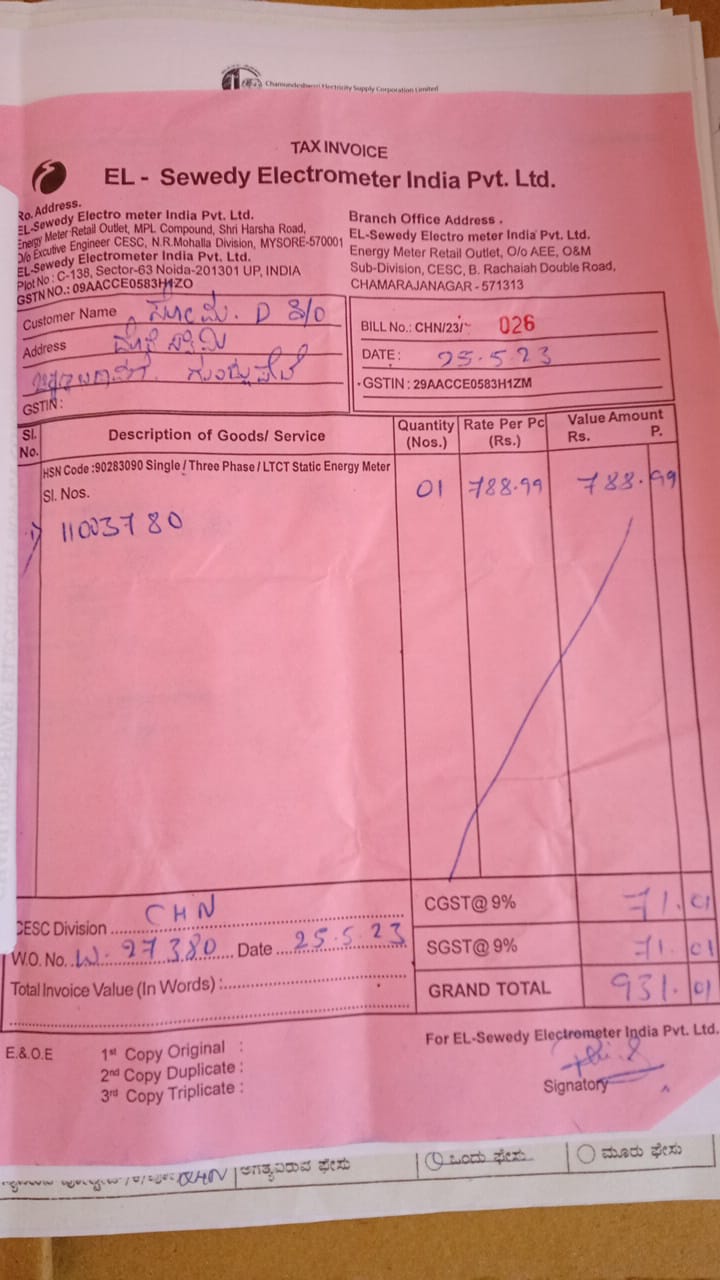 Chamundeshwari Electricity Supply Corporation Limited
TAX INVOICE
EL - Sewedy Electrometer India Pvt. Ltd.
Ro. Address.
EL-Sewedy Electro meter India Pvt. Ltd.
Energy Meter Retail Outlet, MPL Compound, Shri Harsha Road,
O/o Excutive Engineer CESC, N.R.Mohalla Division, MYSORE-570001
EL-Sewedy Electrometer India Pvt. Ltd.
Plot No : C-138, Sector-63 Noida-201301 UP, INDIA
GSTN NO.: 09AACCE0583H1ZO
Branch Office Address .
EL-Sewedy Electro meter India Pvt. Ltd.
Energy Meter Retail Outlet, O/o AEE, O&M
Sub-Division, CESC, B. Rachaiah Double Road,
CHAMARAJANAGAR - 571313
Customer Name ಸೋಮ. D S/O
Address
GSTIN:
BILL No.: CHN/23/- 026
DATE: 25.5.23
GSTIN : 29AACCE0583H1ZM
Sl. No. Description of Goods/ Service Quantity (Nos.) Rate Per Pc (Rs.) Value Amount Rs. P.
HSN Code :90283090 Single / Three Phase / LTCT Static Energy Meter
Sl. Nos. 01 788.99 788.99
1) 11003780
CESC Division CHN
W.O. No. W. 27380 Date 25.5.23
Total Invoice Value (In Words) :
CGST@ 9% 71.01
SGST@ 9% 71.01
GRAND TOTAL 931.01
E.&.O.E
1st Copy Original :
2nd Copy Duplicate :
3rd Copy Triplicate :
For EL-Sewedy Electrometer India Pvt. Ltd.
Signatory
CHN ಅಗತ್ಯವಿರುವ ಫೇಸು ಒಂದು ಫೇಸು ಮೂರು ಫೇಸು